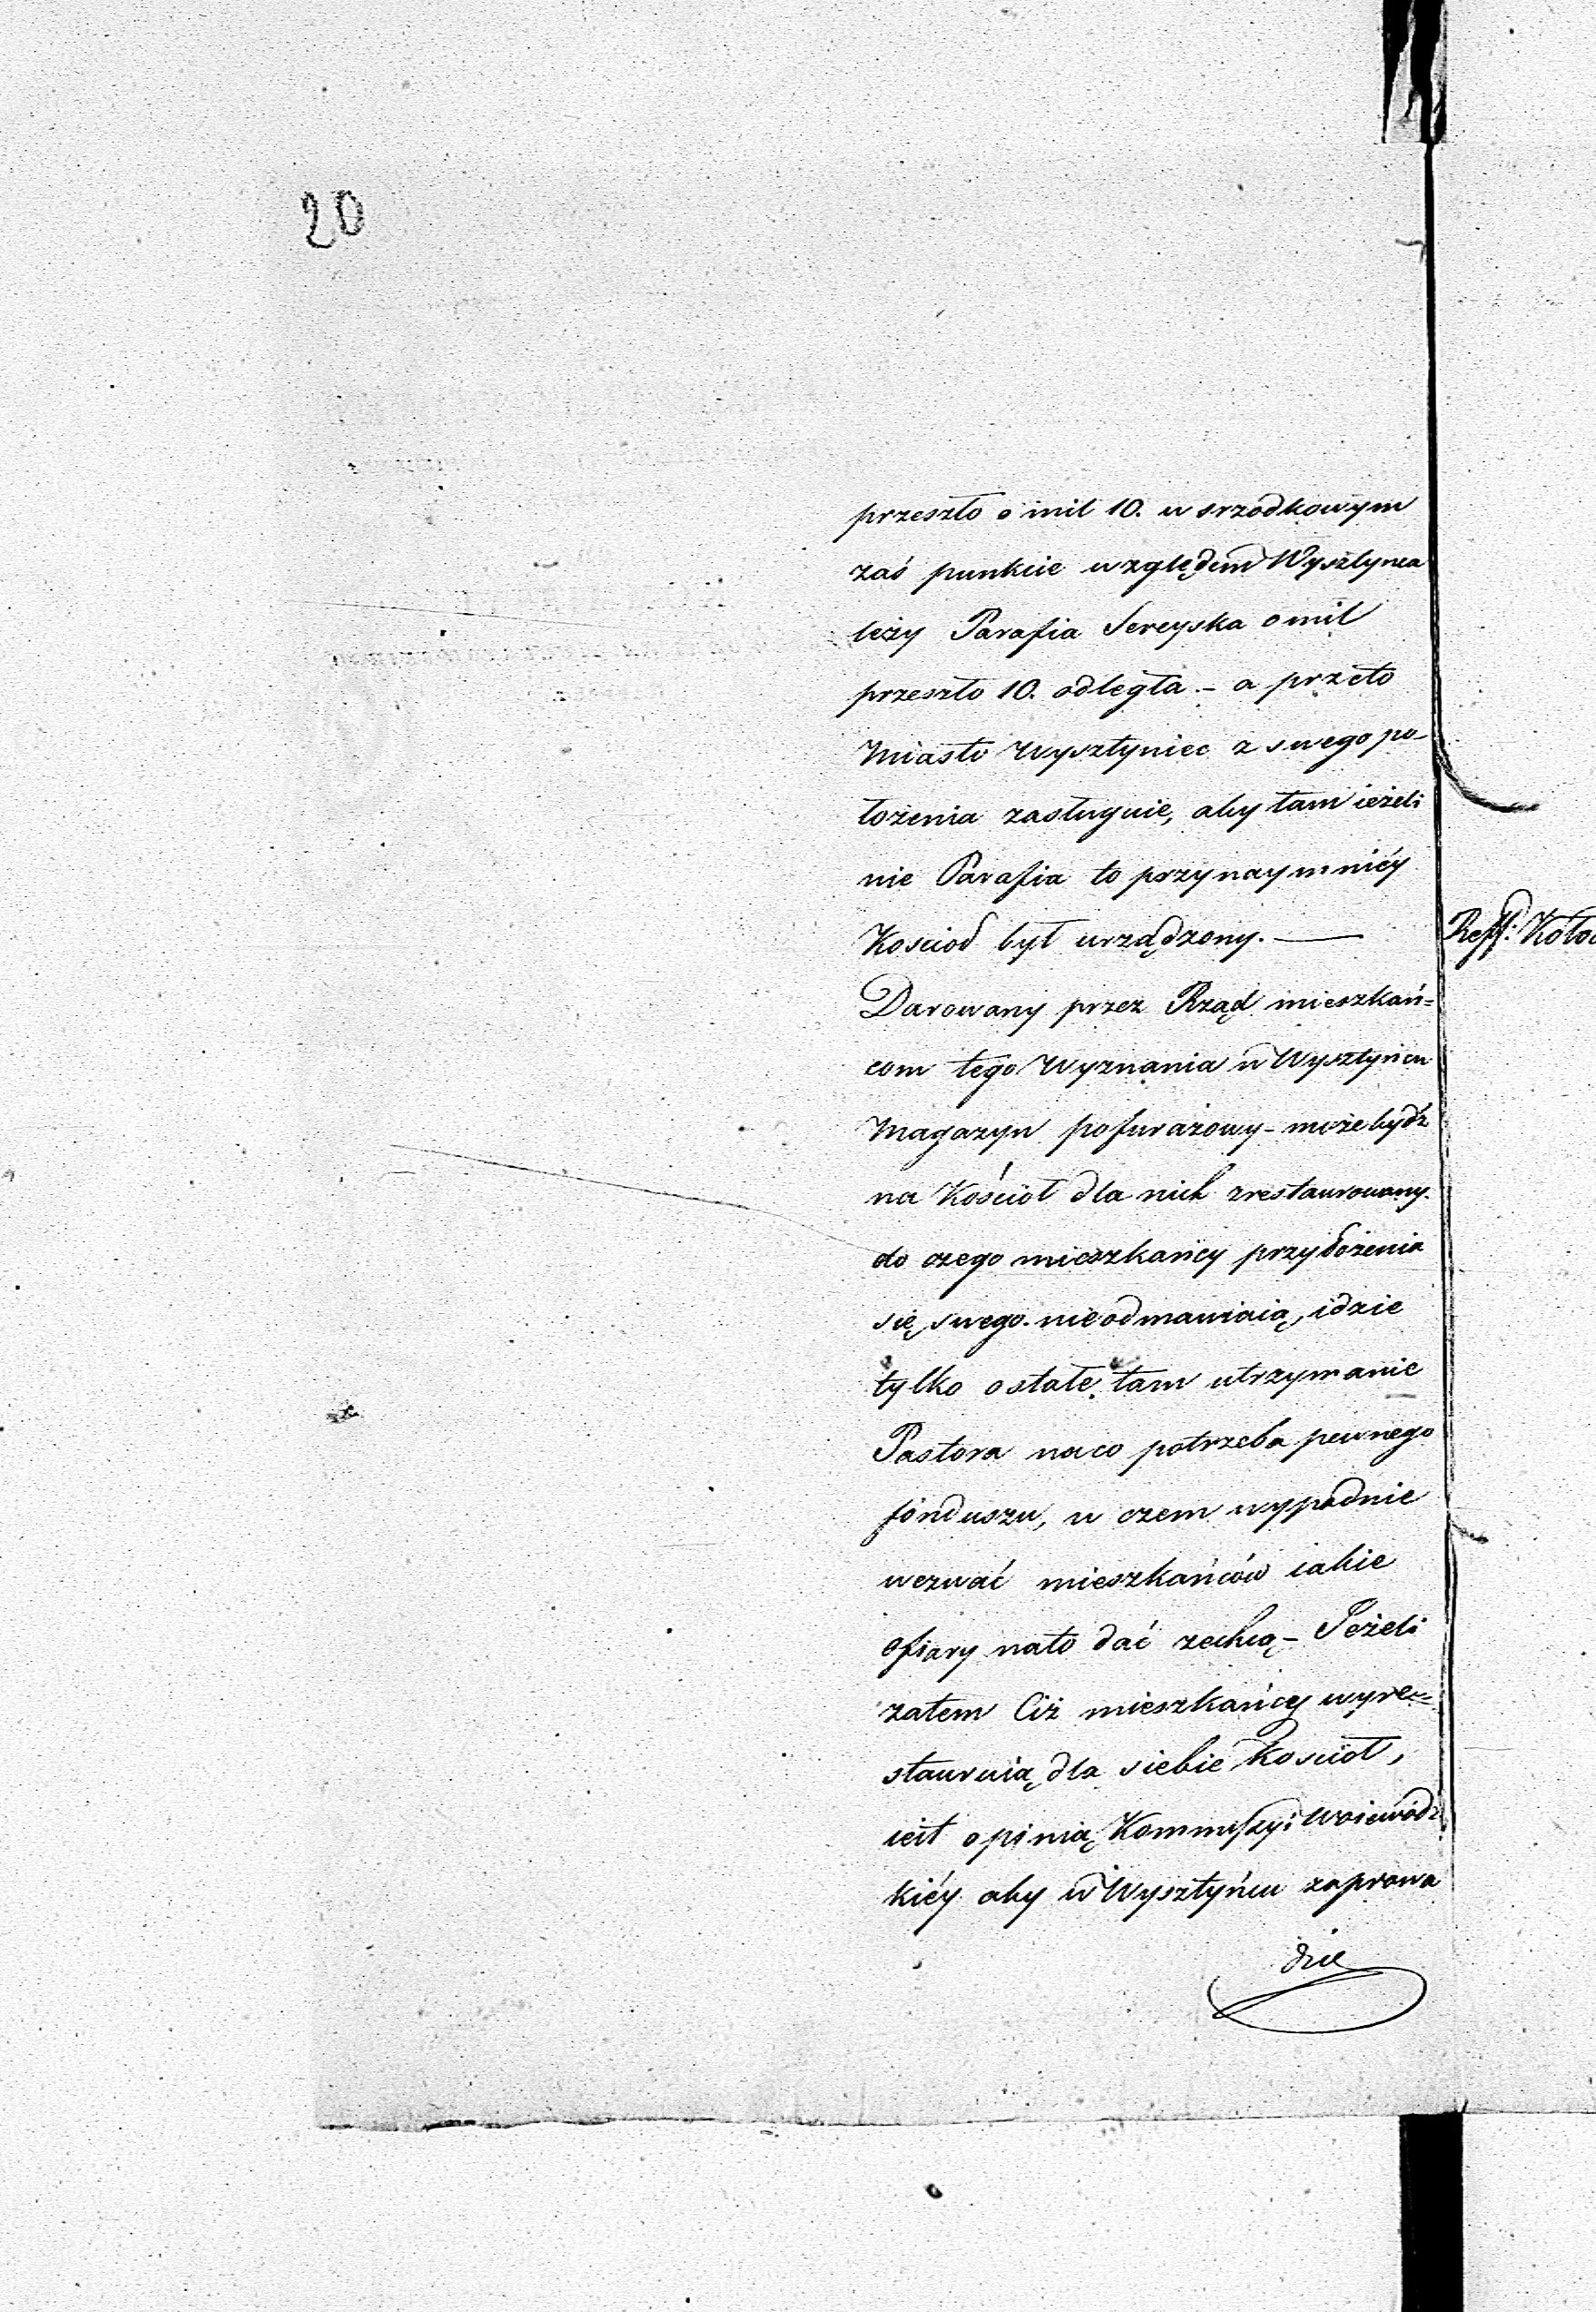 20
przeszło o mil 10. w srzodkowym
zaś punkcie względem Wysztynca
leży Parafia Sereyska o mil
przeszło 10. odległa. – a przeto
Miasto Wysztyniec z swego po-
łożenia zasługuie, aby tam ieżeli
nie Parafia to przynaymniéy
Koscioł był urządzony. —
Reff: Koło
Darowany przez Rząd mieszkań=
com tego Wyznania w Wysztyńcu
Magazyn pofurażowy – może bydź
na Kościoł dla nich zrestaurowany.
do czego mieszkańcy przyłożenia
się swego. nie odmawiaią, idzie
tylko o stałe tam utrzymanie
Pastora na co potrzeba pewnego
funduszu, w czem wypadnie
wezwać mieszkańców iakie
ofiary na to dać zechcą – Jeżeli
zatem Ciż mieszkańcy wyre=
stauruią dla siebie Kościoł,
iest opinią Kommissyi Woiewódz
kiéy aby w Wysztyńcu zaprowa
dzić